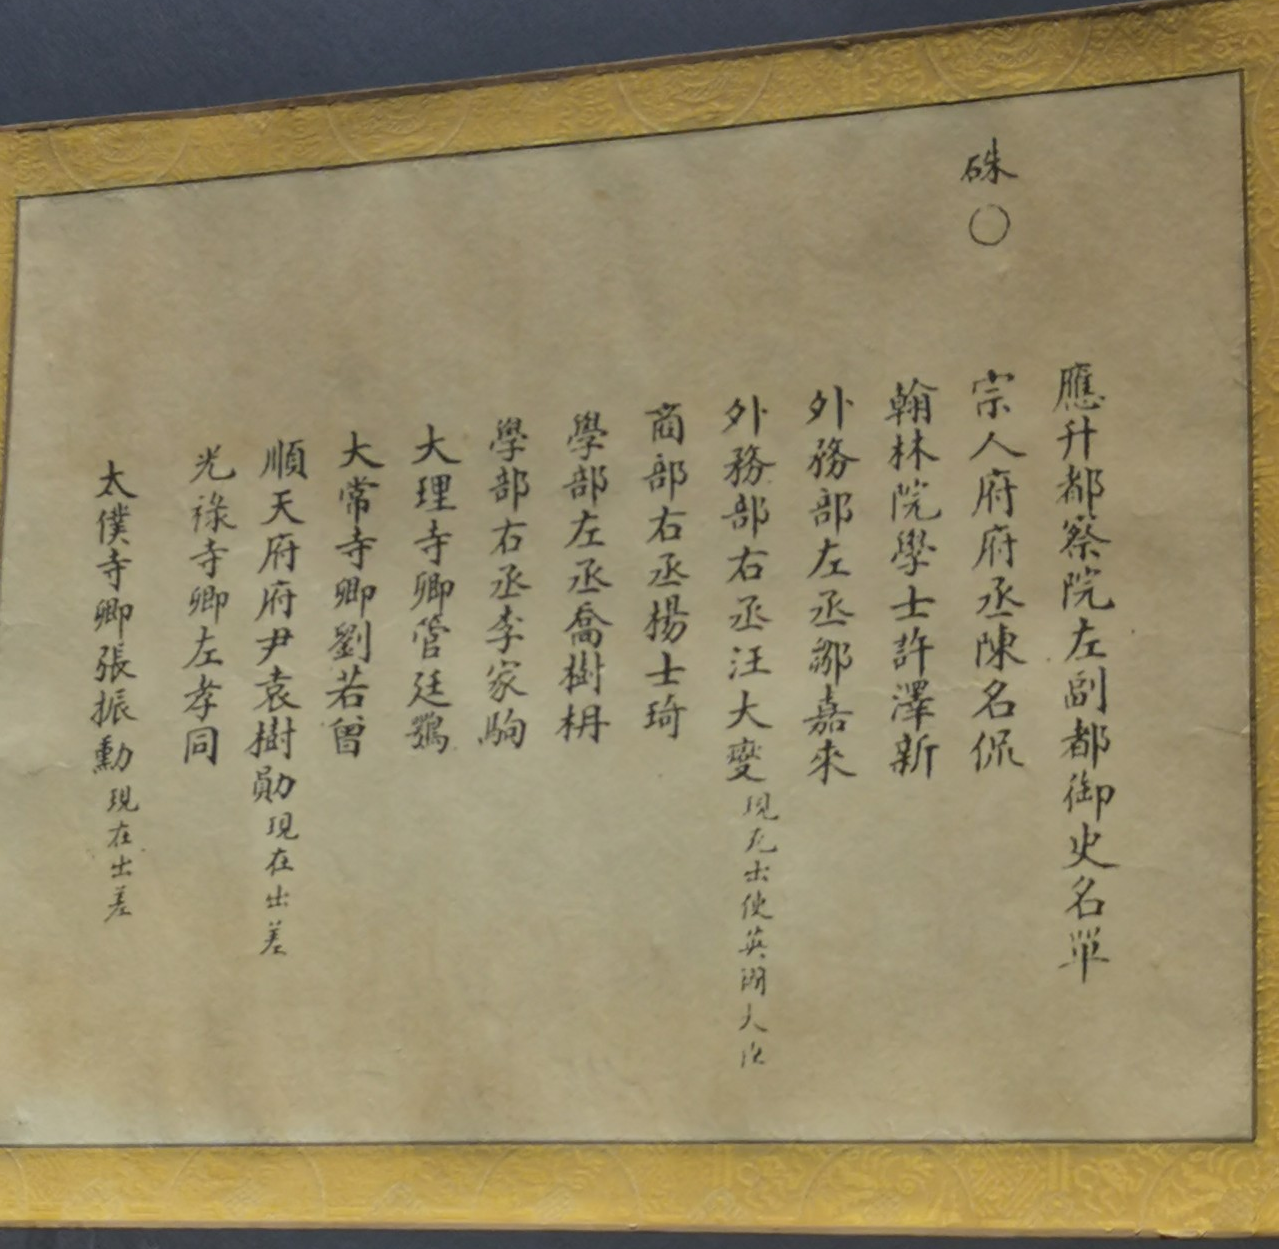 應升都察院左副都御史名單
硃○
宗人府府丞陳名侃
翰林院學士許澤新
外務部左丞鄒嘉來
外務部右丞汪大燮現在出使英國大臣
商部右丞楊士琦
學部左丞喬樹枏
學部右丞李家駒
大理寺卿管廷鶚
太常寺卿劉若曾
順天府府尹袁樹勛現在出差
光祿寺卿左孝同
太僕寺卿張振勳現在出差